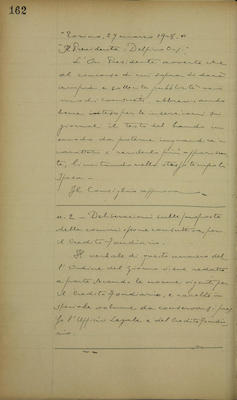 162
"Torino, 29 marzo 1928."
"Il Presidente: Delfino Ces."
L'On. Presidente avverte che
al concorso di cui sopra si darà
ampia e sollecita pubblicità
bene per le inserzioni sui
giornali il testo del bando in
modo da poterne
caratteri e renderlo più appariscen-
te, limitando nello stesso tempo la
spesa.-
Il Consiglio approva.
n. 2 - Deliberazioni sulle proposte
della commissione consultiva per
il Credito Fondiario.
Il verbale di questo numero del-
l'Ordine del giorno viene redatto
a parte secondo le norme vigenti per
il Credito Fondiario, e raccolto in
speciale volume da conservarsi pres-
so l'Ufficio Legale e del Credito Fondia-
rio.